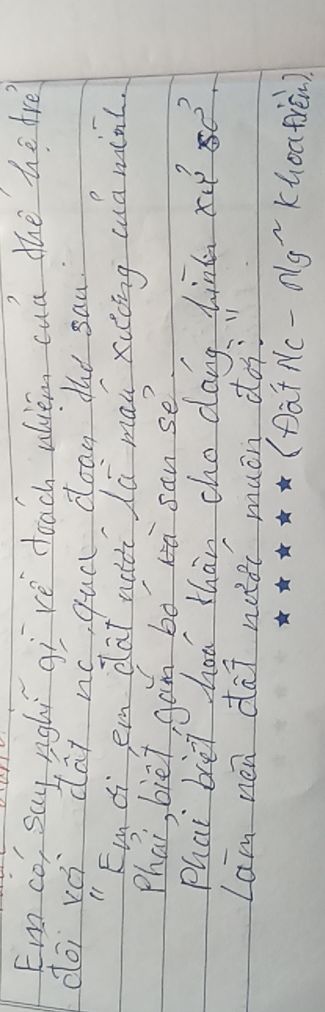 Em có suy nghĩ gì về trách nhiệm của thế hệ trẻ
đối với đất nc qua đoạn thơ sau:
"Em ơi em đất nước là máu xương của mình
Phải biết gắn bó và san sẻ
Phải biết hoá thân cho dáng hình xứ sở
Làm nên đất nước muôn đời"
(Đất Nc - Ng~ Khoa Điềm)